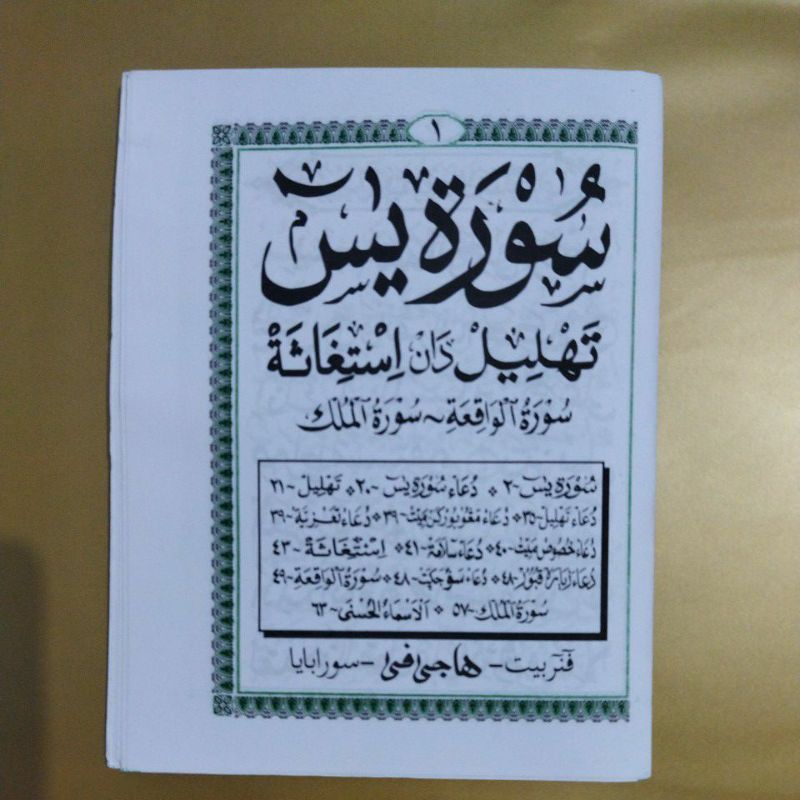 ١
سُوْرَة يٰسٓ
تَهْلِيْل دَانْ اِسْتِغَاثَةْ
سُوْرَةُ الْوَاقِعَةِ ~ سُوْرَةُ الْمُلْك
سُوْرَة يٰسٓ ~ ٢ * دُعَاء سُوْرَة يٰسٓ ~ ٢٠ * تَهْلِيْل ~ ٢١
دُعَاء تَهْلِيْل ~ ٣٥ * دُعَاء مَقُوْبُوْرْكَنْ مَيِّتْ ~ ٣٩ * دُعَاء تَعْزِيَة ~ ٣٩
دُعَاء خُصُوْص مَيِّتْ ~ ٤٠ * دُعَاء سَلَامَة ~ ٤١ * اِسْتِغَاثَة ~ ٤٣
دُعَاء زِيَارَة قُبُوْر ~ ٤٨ * دُعَاء ~ ٤٨ * سُوْرَةُ الْوَاقِعَة ~ ٤٩
سُوْرَةُ الْمُلْك ~ ٥٧ * اَلْاَسْمَاءُ الْحُسْنٰى ~ ٦٣
فنربيت - سورابايا